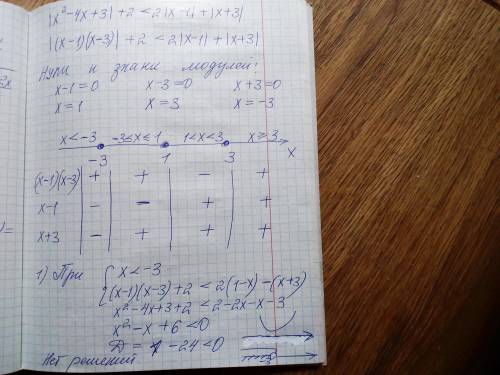 |x²-4x+3|+2<2|x-1|+|x+3|
|(x-1)(x-3)|+2<2|x-1|+|x+3|
Нули и знаки модулей:
x-1=0 x-3=0 x+3=0
x=1 x=3 x=-3
x<-3 -3≤x≤1 1<x<3 x≥3
-3 1 3 x
(x-1)(x-3) + + - +
x-1 - - + +
x+3 - + + +
1) При { x<-3
(x-1)(x-3)+2<2(1-x)-(x+3)
x²-4x+3+2<2-2x-x-3
x²-x+6<0
D=1-24<0
Нет решений